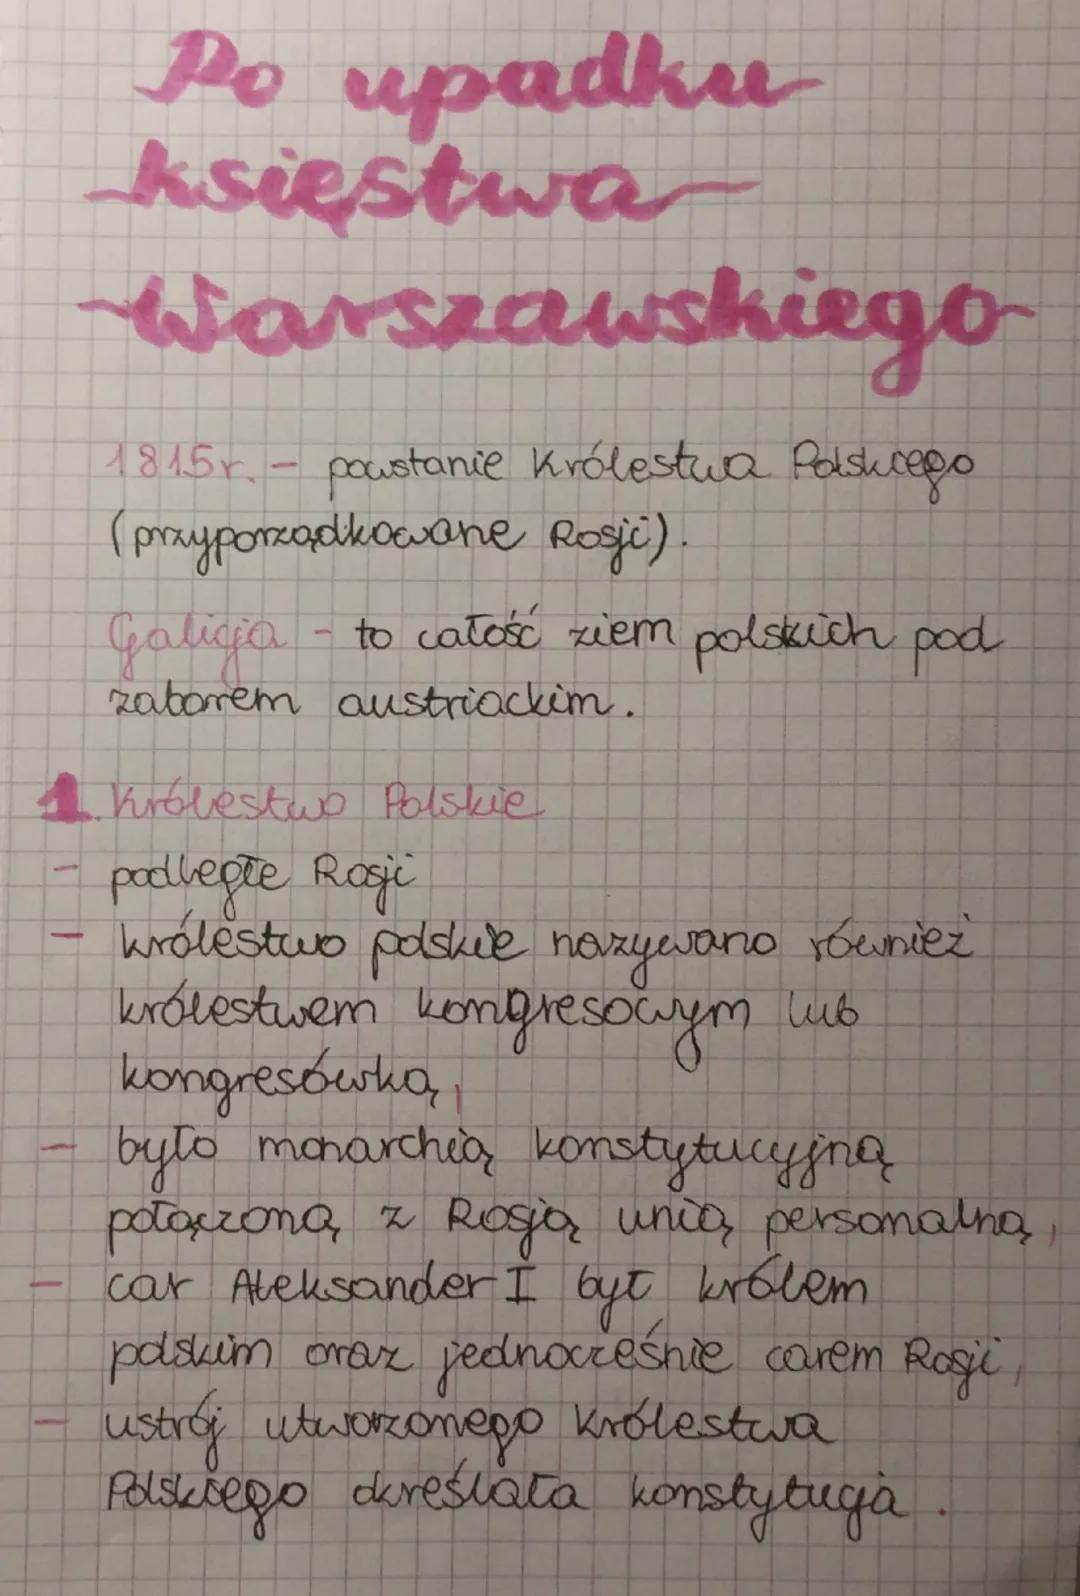 Po upadku
księstwa
Warszawskiego
1815r. - powstanie Królestwa Polskiego
(przyporządkowane Rosji).
Galicja - to całość ziem polskich pod
zaborem austriackim.
1. Królestwo Polskie
- podległe Rosji
- królestwo polskie nazywano również
królestwem kongresowym lub
kongresówką,
- było monarchią konstytucyjną
połączoną z Rosją unią personalną,
- car Aleksander I był królem
polskim oraz jednocześnie carem Rosji,
- ustrój utworzonego Królestwa
Polskiego określała konstytucja.